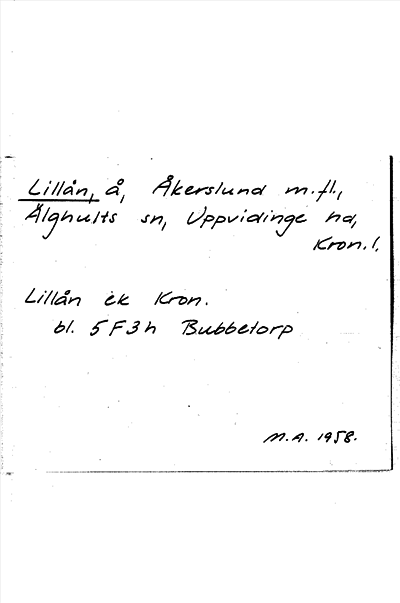 Lillån, å, Åkerslund m.fl.,
Älghults sn, Uppvidinge hd,
Kron.l.
Lillån ek Kron.
bl. 5F3h Bubbetorp
M.A. 1958.